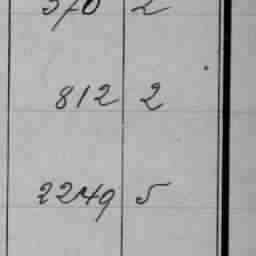 570 2
812 2
2249 5